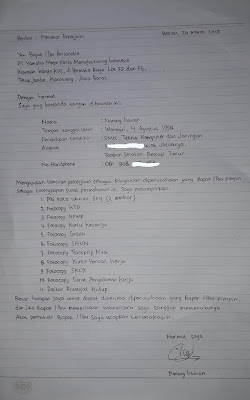 Perihal : Melamar Pekerjaan
Bekasi, 20 Maret 2018
Yth. Bapak / Ibu Personalia
PT Yamaha Music Manufacturing Indonesia
Kawasan Industri KIIC,
Teluk Jambe, Karawang, Jawa Barat
Dengan hormat
Saya yang bertanda tangan dibawah ini.
Nama : Nanang Irawan
Tempat tanggal lahir : 4 Agustus 1998
Pendidikan terakhir : SMK Teknik Komputer dan Jaringan
Alamat : Jatimulya,
Tambun Selatan Bekasi Timur
No Handphone :
Mengajukan lamaran pekerjaan sebagai karyawan diperusahaan yang Bapak / Ibu pimpin.
Sebagai kelengkapan surat permohonan ini. Saya melampirkan.
1. Pas foto ukuran 3x4 (2 lembar)
2. Fotocopy KTP
3. Fotocopy NPWP
4. Fotocopy Kartu Keluarga
5. Fotocopy Ijazah
6. Fotocopy SHUN
7. Fotocopy Transkip Nilai
8. Fotocopy Kartu Pencari Kerja
9. Fotocopy SKCK
10. Fotocopy Surat Pengalaman Kerja
11. Daftar Riwayat Hidup
Besar harapan saya untuk dapat diterima diperusahaan yang Bapak / Ibu pimpin,
dan jika Bapak / Ibu memerlukan wawancara saya sanggup memenuhinya.
Atas perhatian Bapak / Ibu saya ucapkan terimakasih.
Hormat saya
Nanang Irawan